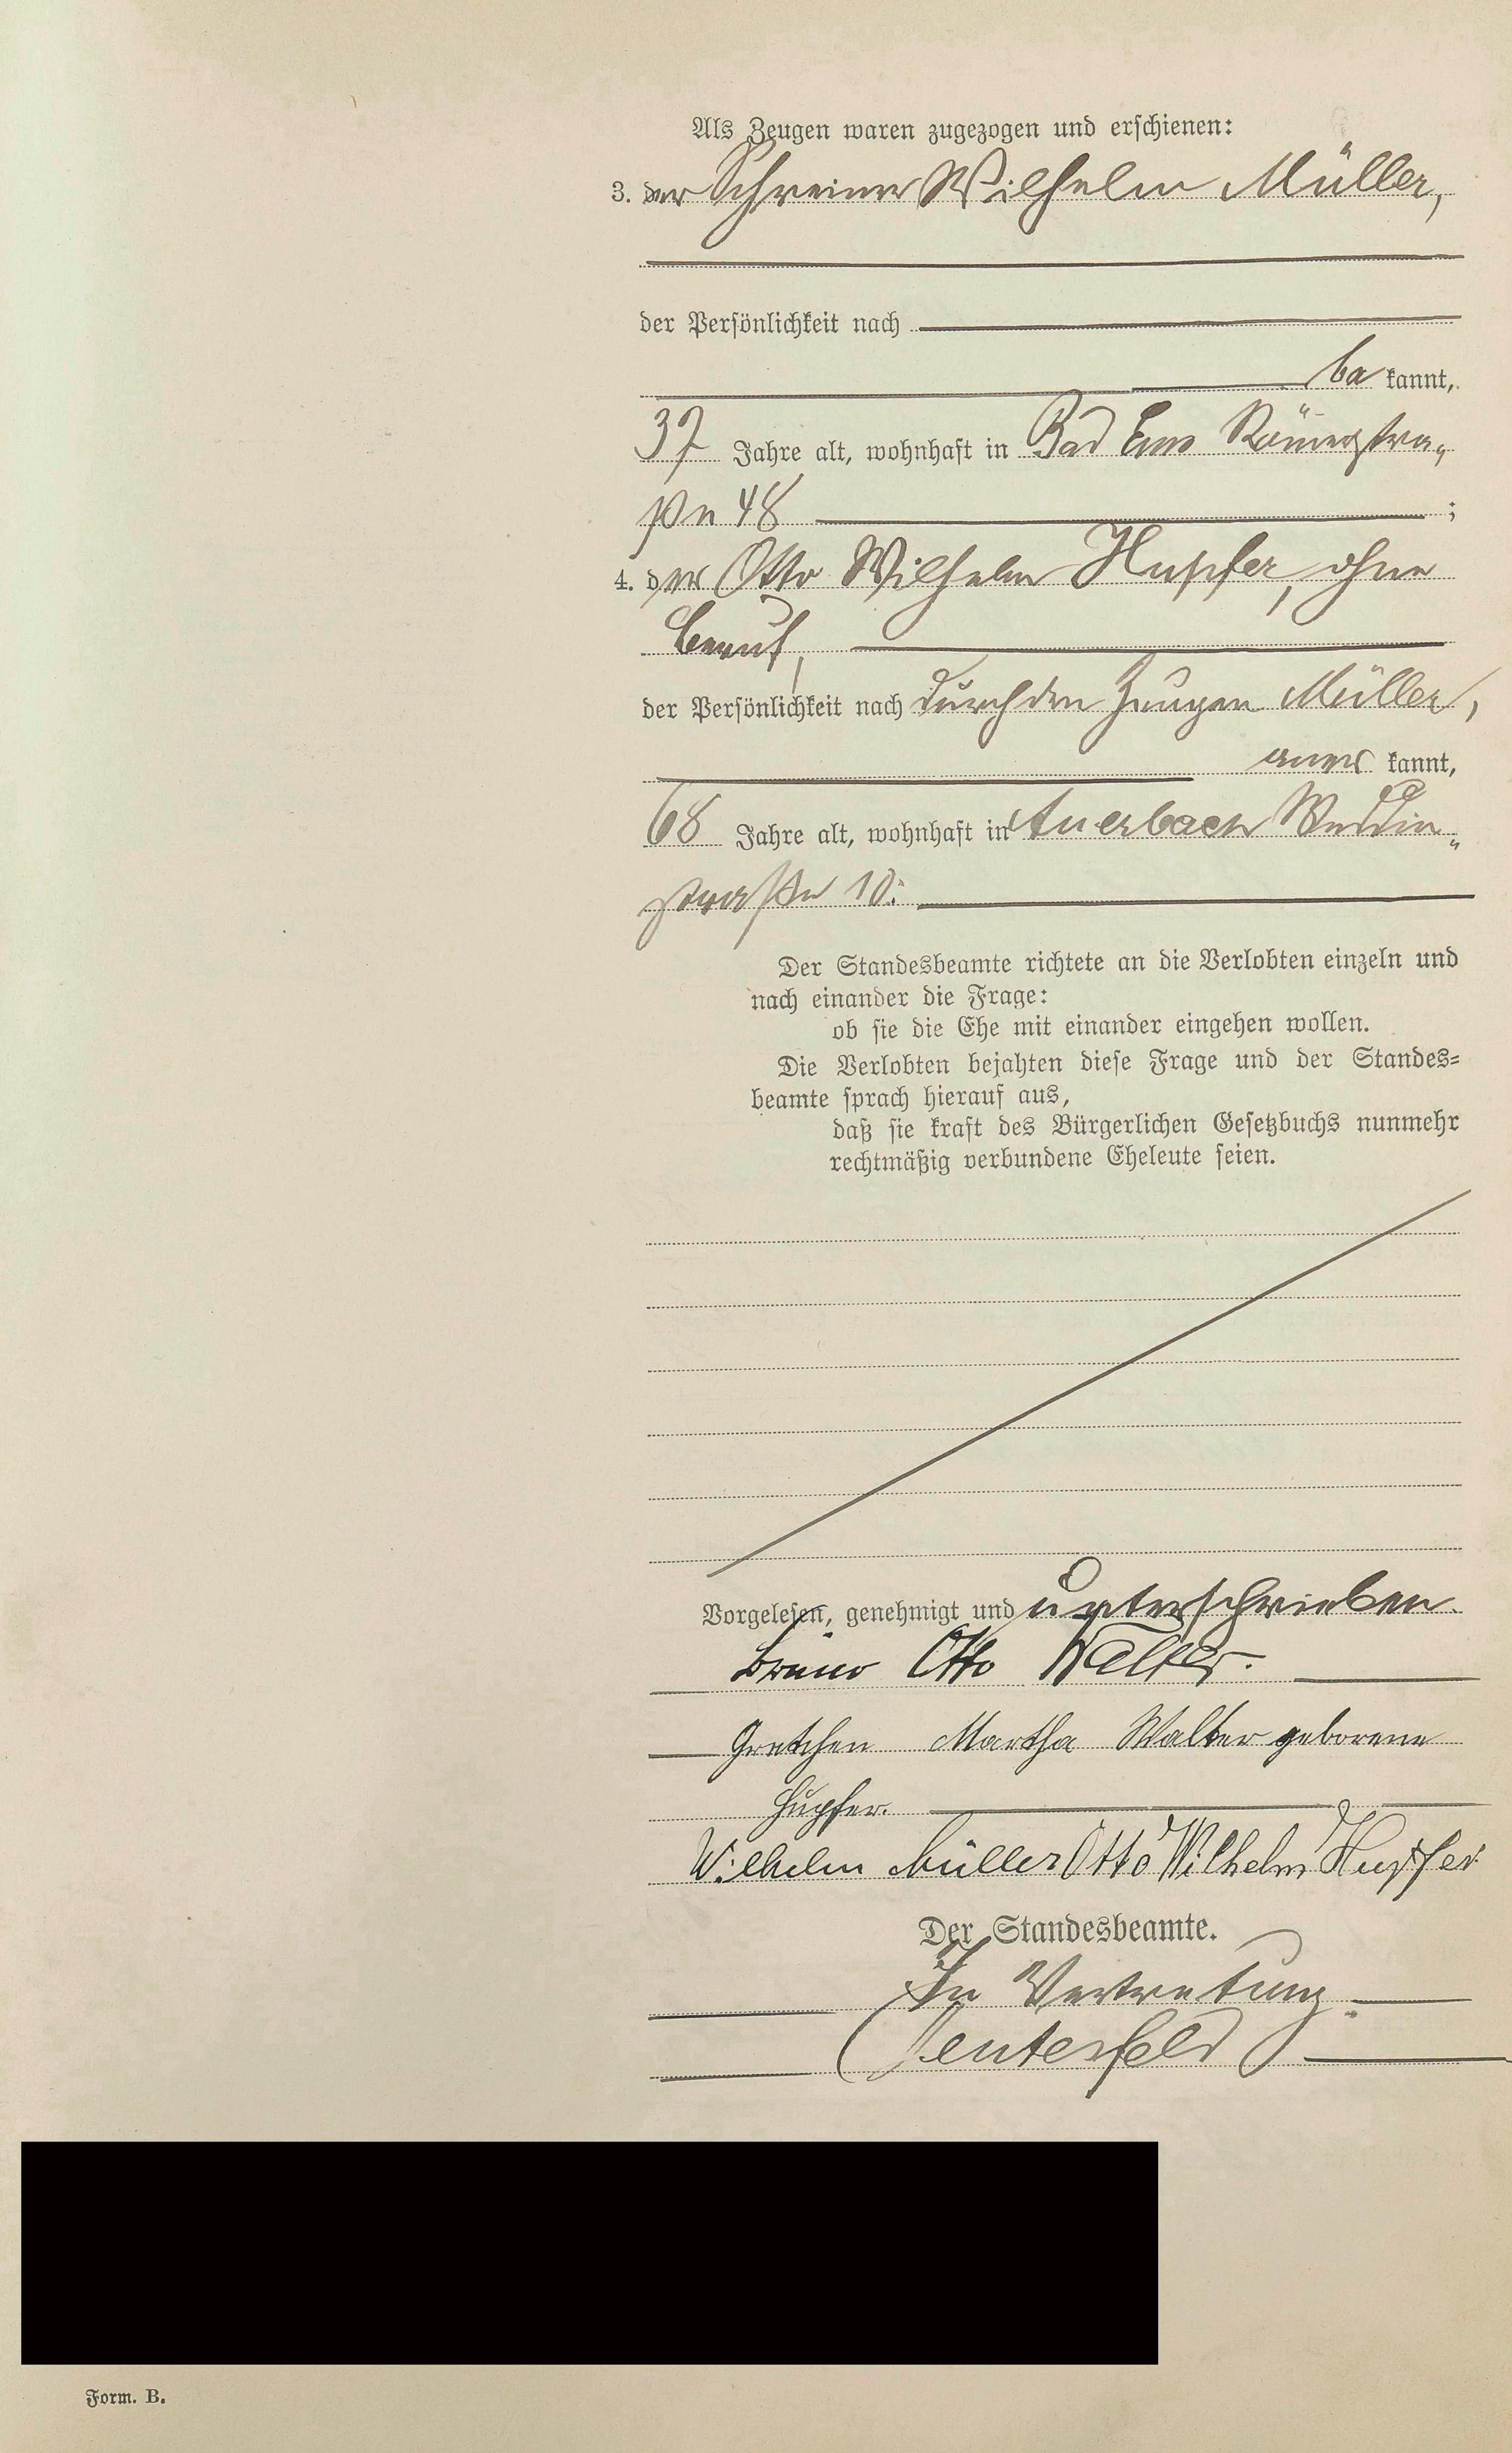 Als Zeugen waren zugezogen und erschienen:
3. der Schreiner Wilhelm Müller,
der Persönlichkeit nach
be kannt,
37 Jahre alt, wohnhaft in Bad Ems Römerstra„
ße 48 ;
4. der Otto Wilhelm Hupfer, ohne
Beruf,
der Persönlichkeit nach durch den Zeugen Müller,
aner kannt,
68 Jahre alt, wohnhaft in Auerbach
straße 10.
Der Standesbeamte richtete an die Verlobten einzeln und
nach einander die Frage:
ob sie die Ehe mit einander eingehen wollen.
Die Verlobten bejahten diese Frage und der Standes=
beamte sprach hierauf aus,
daß sie kraft des Bürgerlichen Gesetzbuchs nunmehr
rechtmäßig verbundene Eheleute seien.
Vorgelesen, genehmigt und unterschrieben.
Bruno Otto Walter.
Gretchen Martha Walter geborene
Hupfer.
Wilhelm Müller Otto Wilhelm Hupfer
Der Standesbeamte.
In Vertretung.
Form. B.